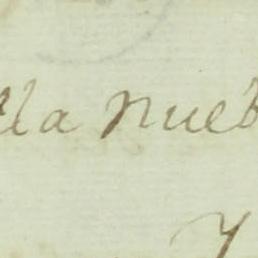 lla nueb